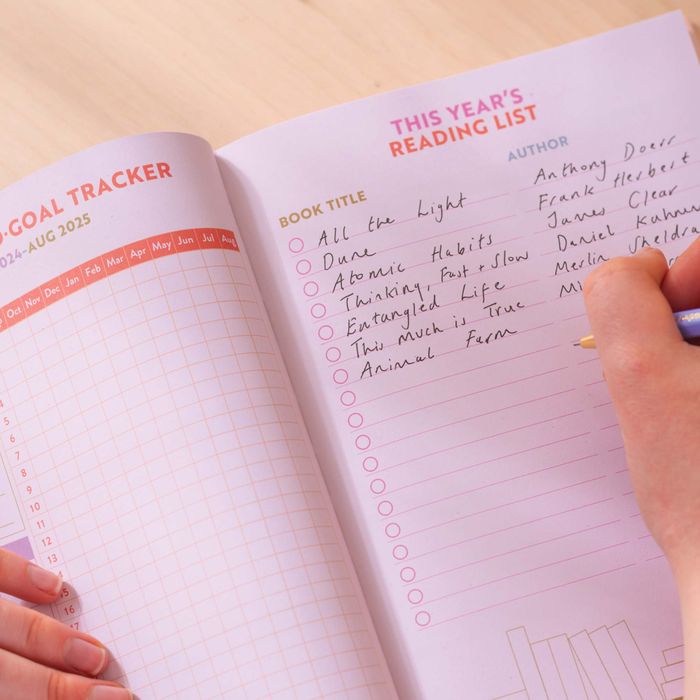 -GOAL TRACKER
024-AUG 2025
Oct Nov Dec Jan Feb Mar Apr May Jun Jul Aug
4
5
6
7
8
9
10
11
12
13
15
16
17
THIS YEAR'S
READING LIST
BOOK TITLE AUTHOR
All the Light Anthony Doerr
Dune Frank Herbert
Atomic Habits James Clear
Thinking, Fast + Slow Daniel Kahn
Entangled Life Merlin Sheldra
This Much is True Mi
Animal Farm